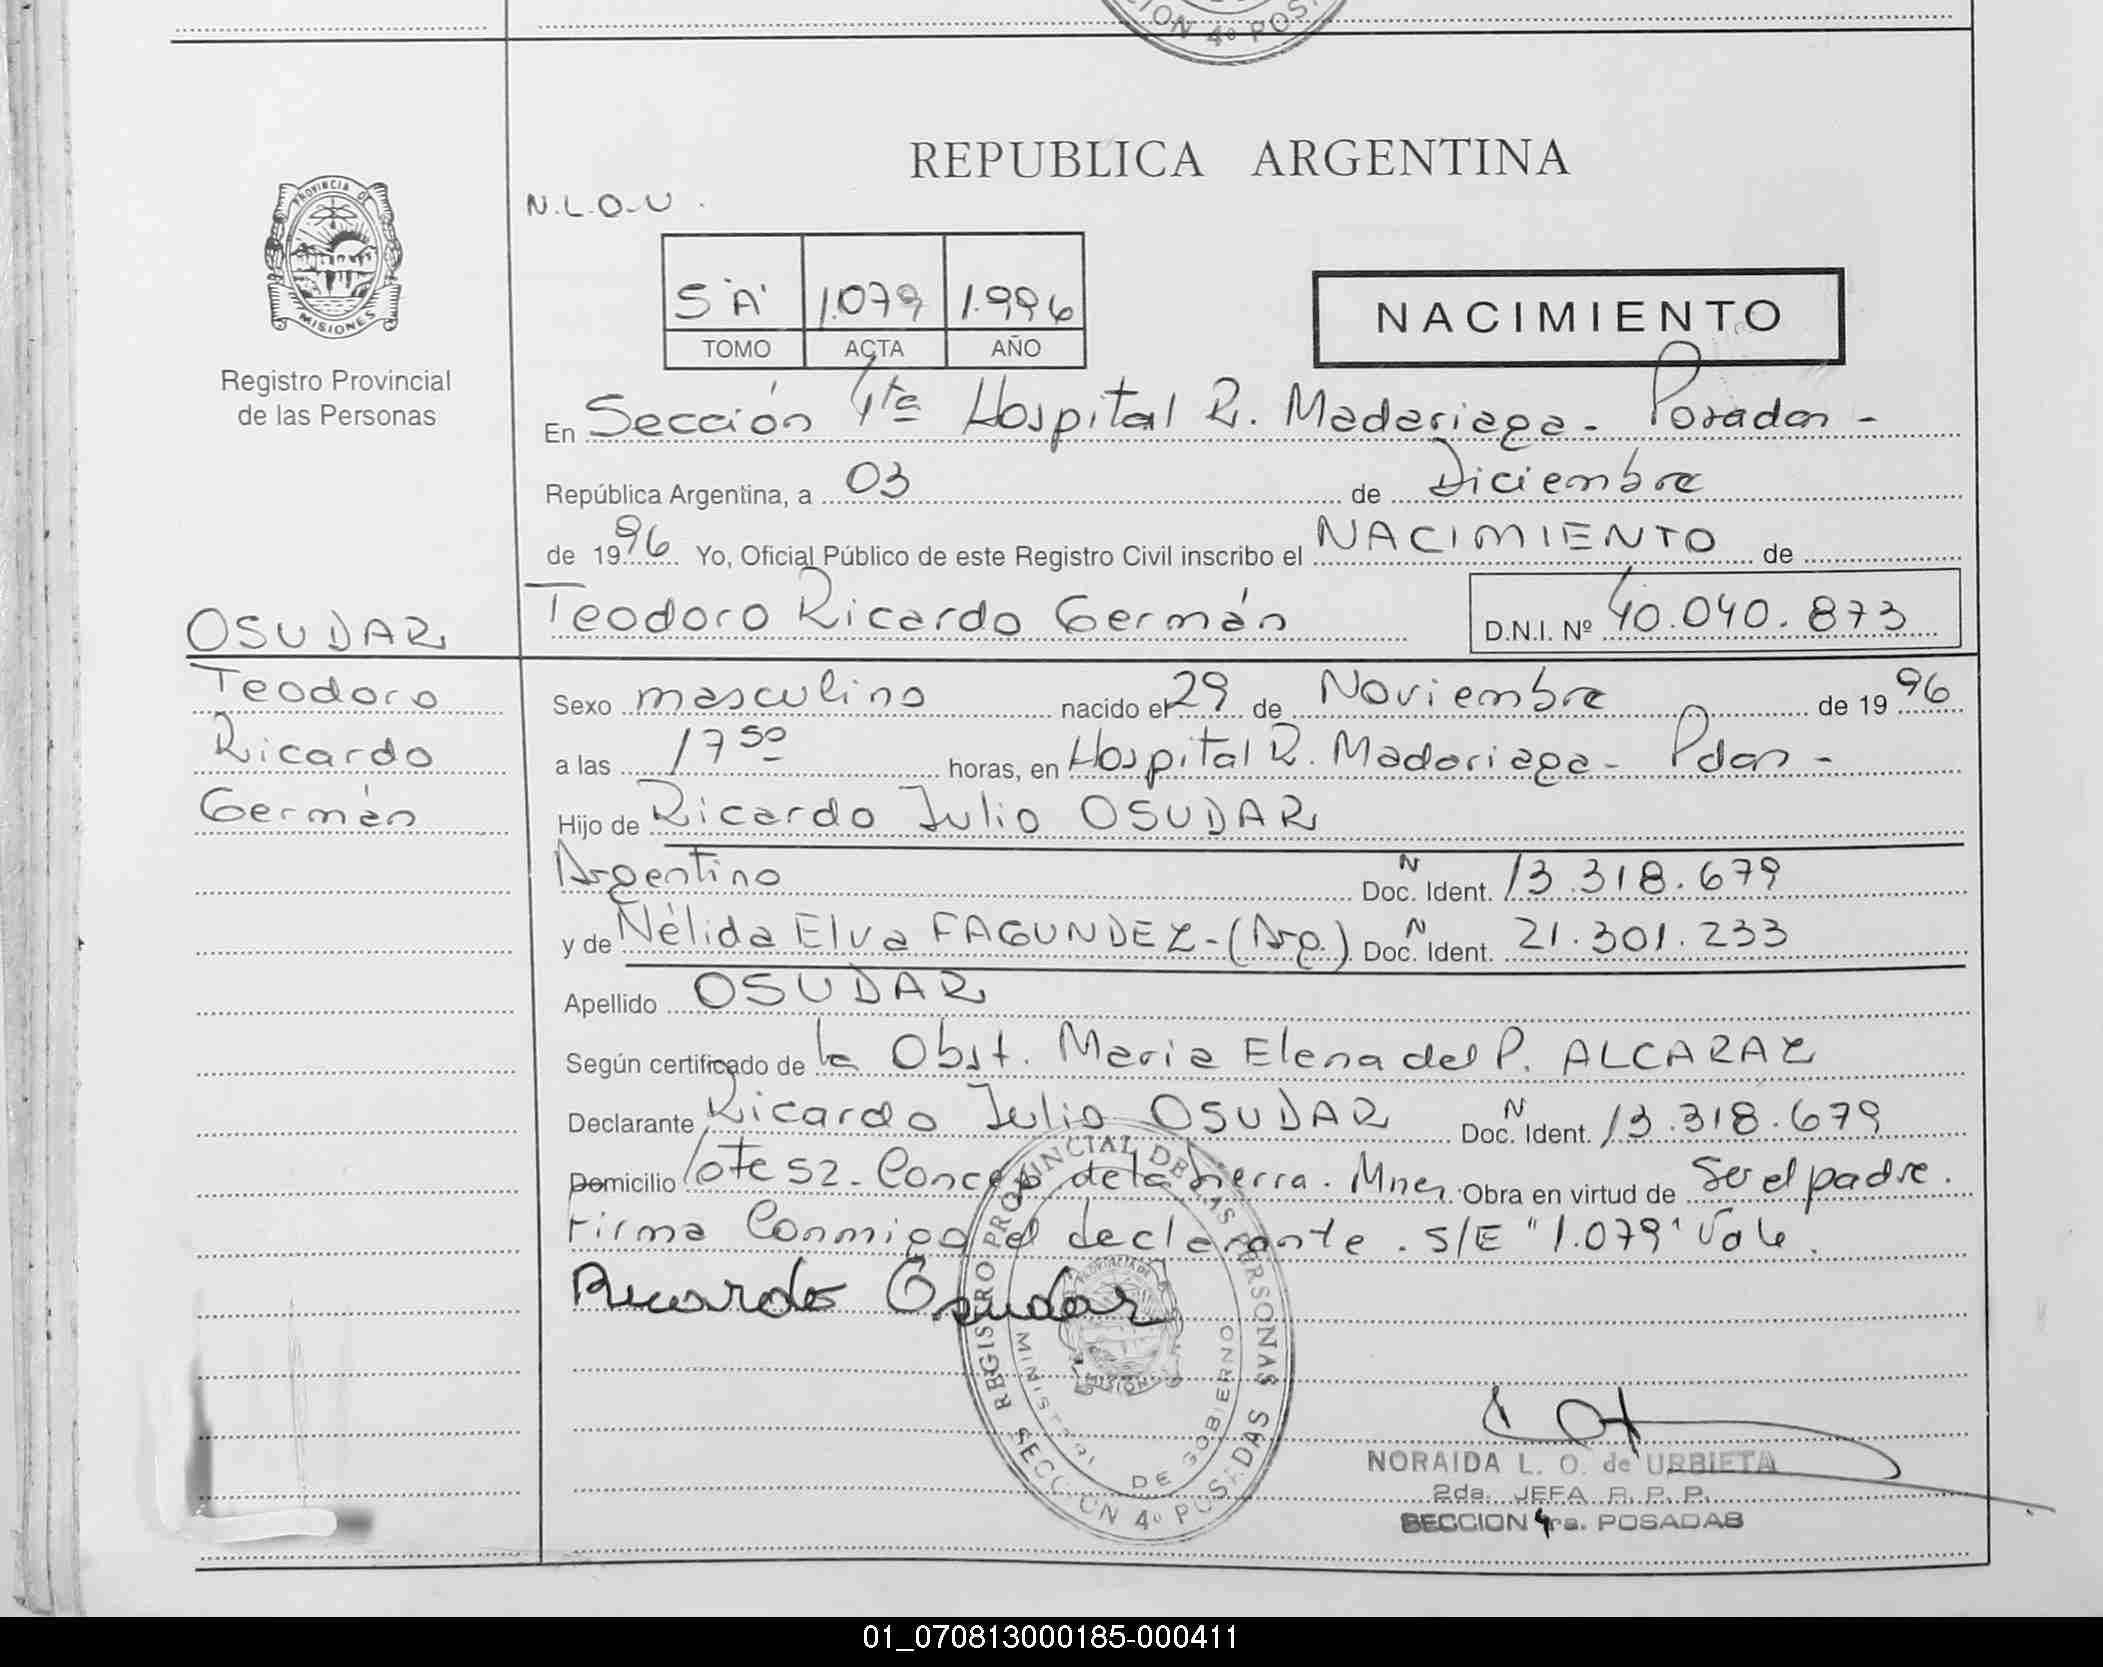 CION 4º POS
REPUBLICA ARGENTINA
PROVINCIA DE
MISIONES
N.L.O.U.
5 "A" 1.079 1.996
TOMO ACTA AÑO
NACIMIENTO
Registro Provincial
de las Personas
En Sección 4ta Hospital R. Madariaga - Posadas -
República Argentina, a 03 de Diciembre
de 1996. Yo, Oficial Público de este Registro Civil inscribo el NACIMIENTO de
Teodoro Ricardo Germán D.N.I. Nº 40.040.873
OSUDAR
Teodoro
Ricardo
Germán
Sexo masculino nacido el 29 de Noviembre de 1996
a las 17 50 horas, en Hospital R. Madariaga - Pdas -
Hijo de Ricardo Julio OSUDAR
Argentino Doc. N Ident. 13.318.679
y de Nélida Elva FAGUNDEZ - (Arg.) Doc. N Ident. 21.301.233
Apellido OSUDAR
Según certificado de la Obst. Maria Elena del P. ALCARAZ
Declarante Ricardo Julio OSUDAR Doc. N Ident. 13.318.679
Domicilio lote 52 - Concep de la Sierra. Mnes. Obra en virtud de Ser el padre.
Firma Conmigo el declarante. S/E "1.079" Vale.
Ricardo Osudar
REGISTRO PROVINCIAL DE LAS PERSONAS
SECCION 4º POSADAS
MINISTERI DE GOBIERNO
PROVINCIA DE
MISIONES
NORAIDA L. O. de URBIETA
2da. JEFA R. P. P.
SECCION 4ra. POSADAS
01_070813000185-000411